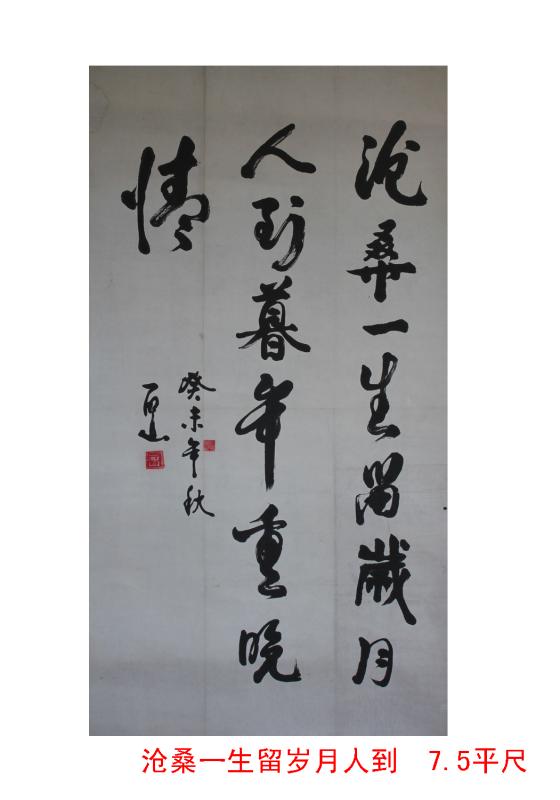 沧桑一生留歲月
人到暮年重晚
情
癸未年秋
百山
沧桑一生留岁月人到 7.5平尺